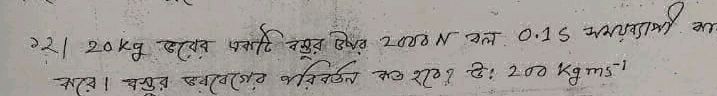 ১২। 20kg ভরের একটি বস্তুর উপর 2000 N বল 0.1s সময়ব্যাপী কা
করে। বস্তুর ভরবেগের পরিবর্তন কত হবে? উ: 200 kgms⁻¹